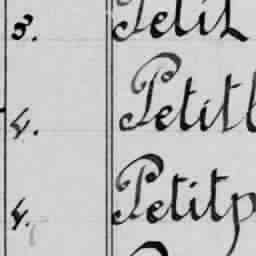 3. Petit
4. Petitb
4. Petitp